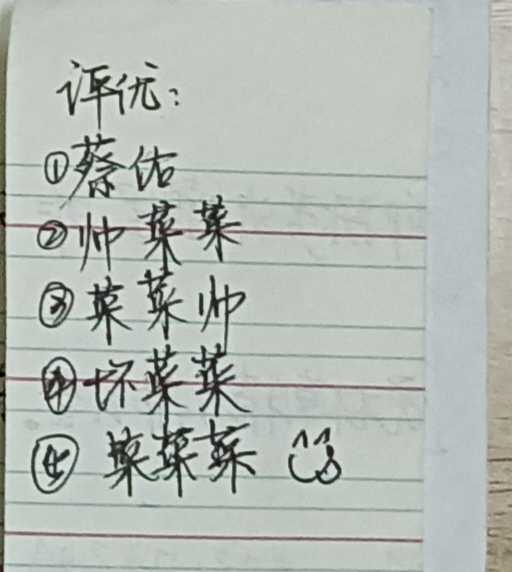 评优:
①蔡佑
②帅菜菜
③菜菜帅
④坏菜菜
⑤菜菜菜